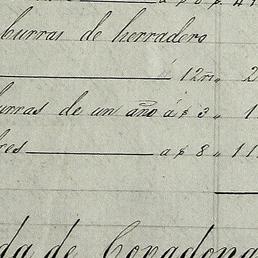 burras de herradero
á 12 rs, 2
burras de un año á $ 3, 1
res a $ 8, 11
da de Covadonga